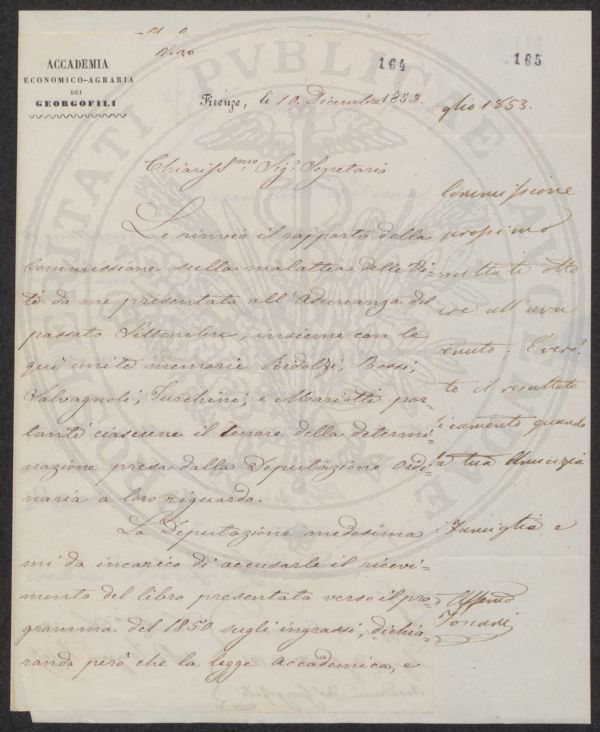 N. 20
164
165
ACCADEMIA
ECONOMICO-AGRARIA
DEI
GEORGOFILI
Firenze, li 10. Dicembre 1853.
Chiariss.mo Sig.r Segretario
Le rinvio il rapporto della
Commissione sulla malattia delle Vi=
ti da me presentato all'Adunanza del
passato Settembre, insieme con le
qui unite memorie Ridolfi; Bossi;
Salvagnoli; Turchini; e Mariotti por=
tanti ciascune il tenore della determi=
nazione presa dalla Deputazione ordi=
naria a loro riguardo.
La Deputazione medesima
mi da incarico di accusarle il ricevi=
mento del libro presentato verso il pro=
gramma del 1850 sugli ingrassi, dichia=
rando però che la legge accademica, e
glio 1853.
Commissione
prossimo
all'uva
enuto.
to il resultato
camento quando
la tua Amicizia
Famiglia e
PVBLICAE